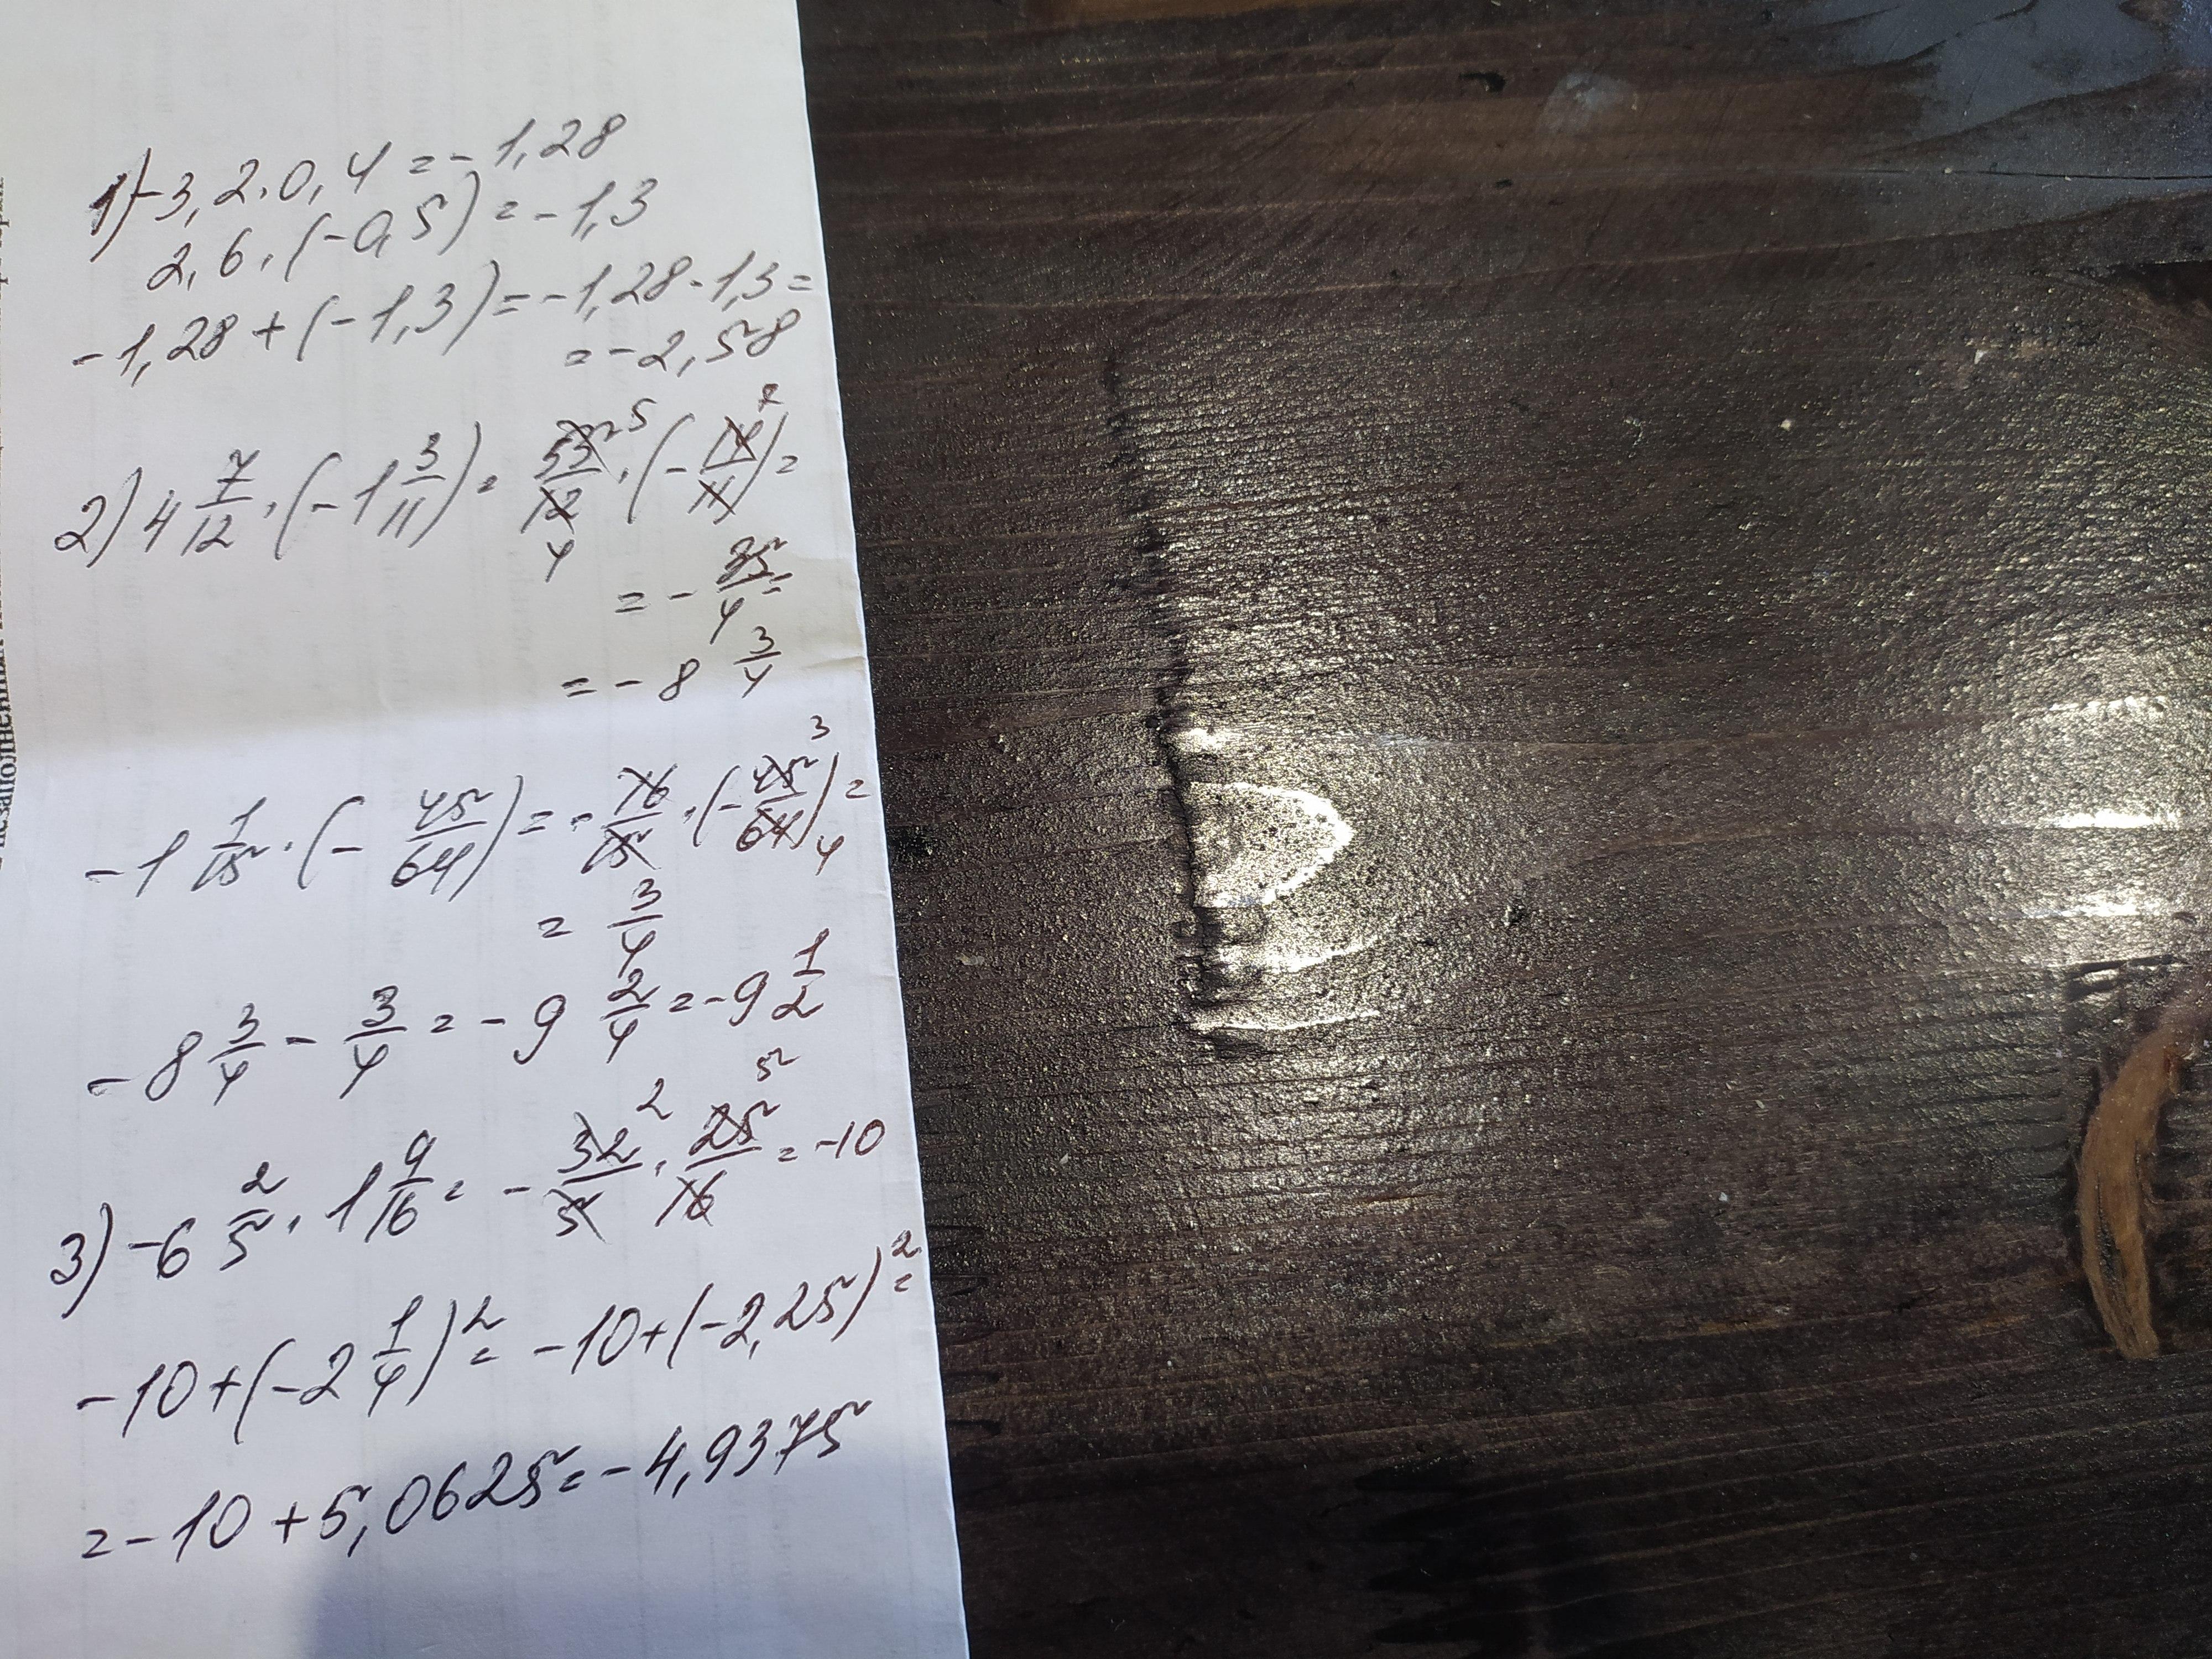 1) -3,2 · 0,4 = -1,28
2,6 · (-0,5) = -1,3
-1,28 + (-1,3) = -1,28 - 1,3 =
= -2,58
2) 4 7/12 · (-1 3/11) = 55/12 · (-14/11) =
= - 35/4 =
= -8 3/4
-1 1/15 · (- 45/64) = - 16/15 · (- 45/64) =
= 3/4
-8 3/4 - 3/4 = -9 2/4 = -9 1/2
3) -6 2/5 · 1 9/16 = - 32/5 · 25/16 = -10
-10 + (-2 1/4)² = -10 + (-2,25)² =
= -10 + 5,0625 = -4,9375